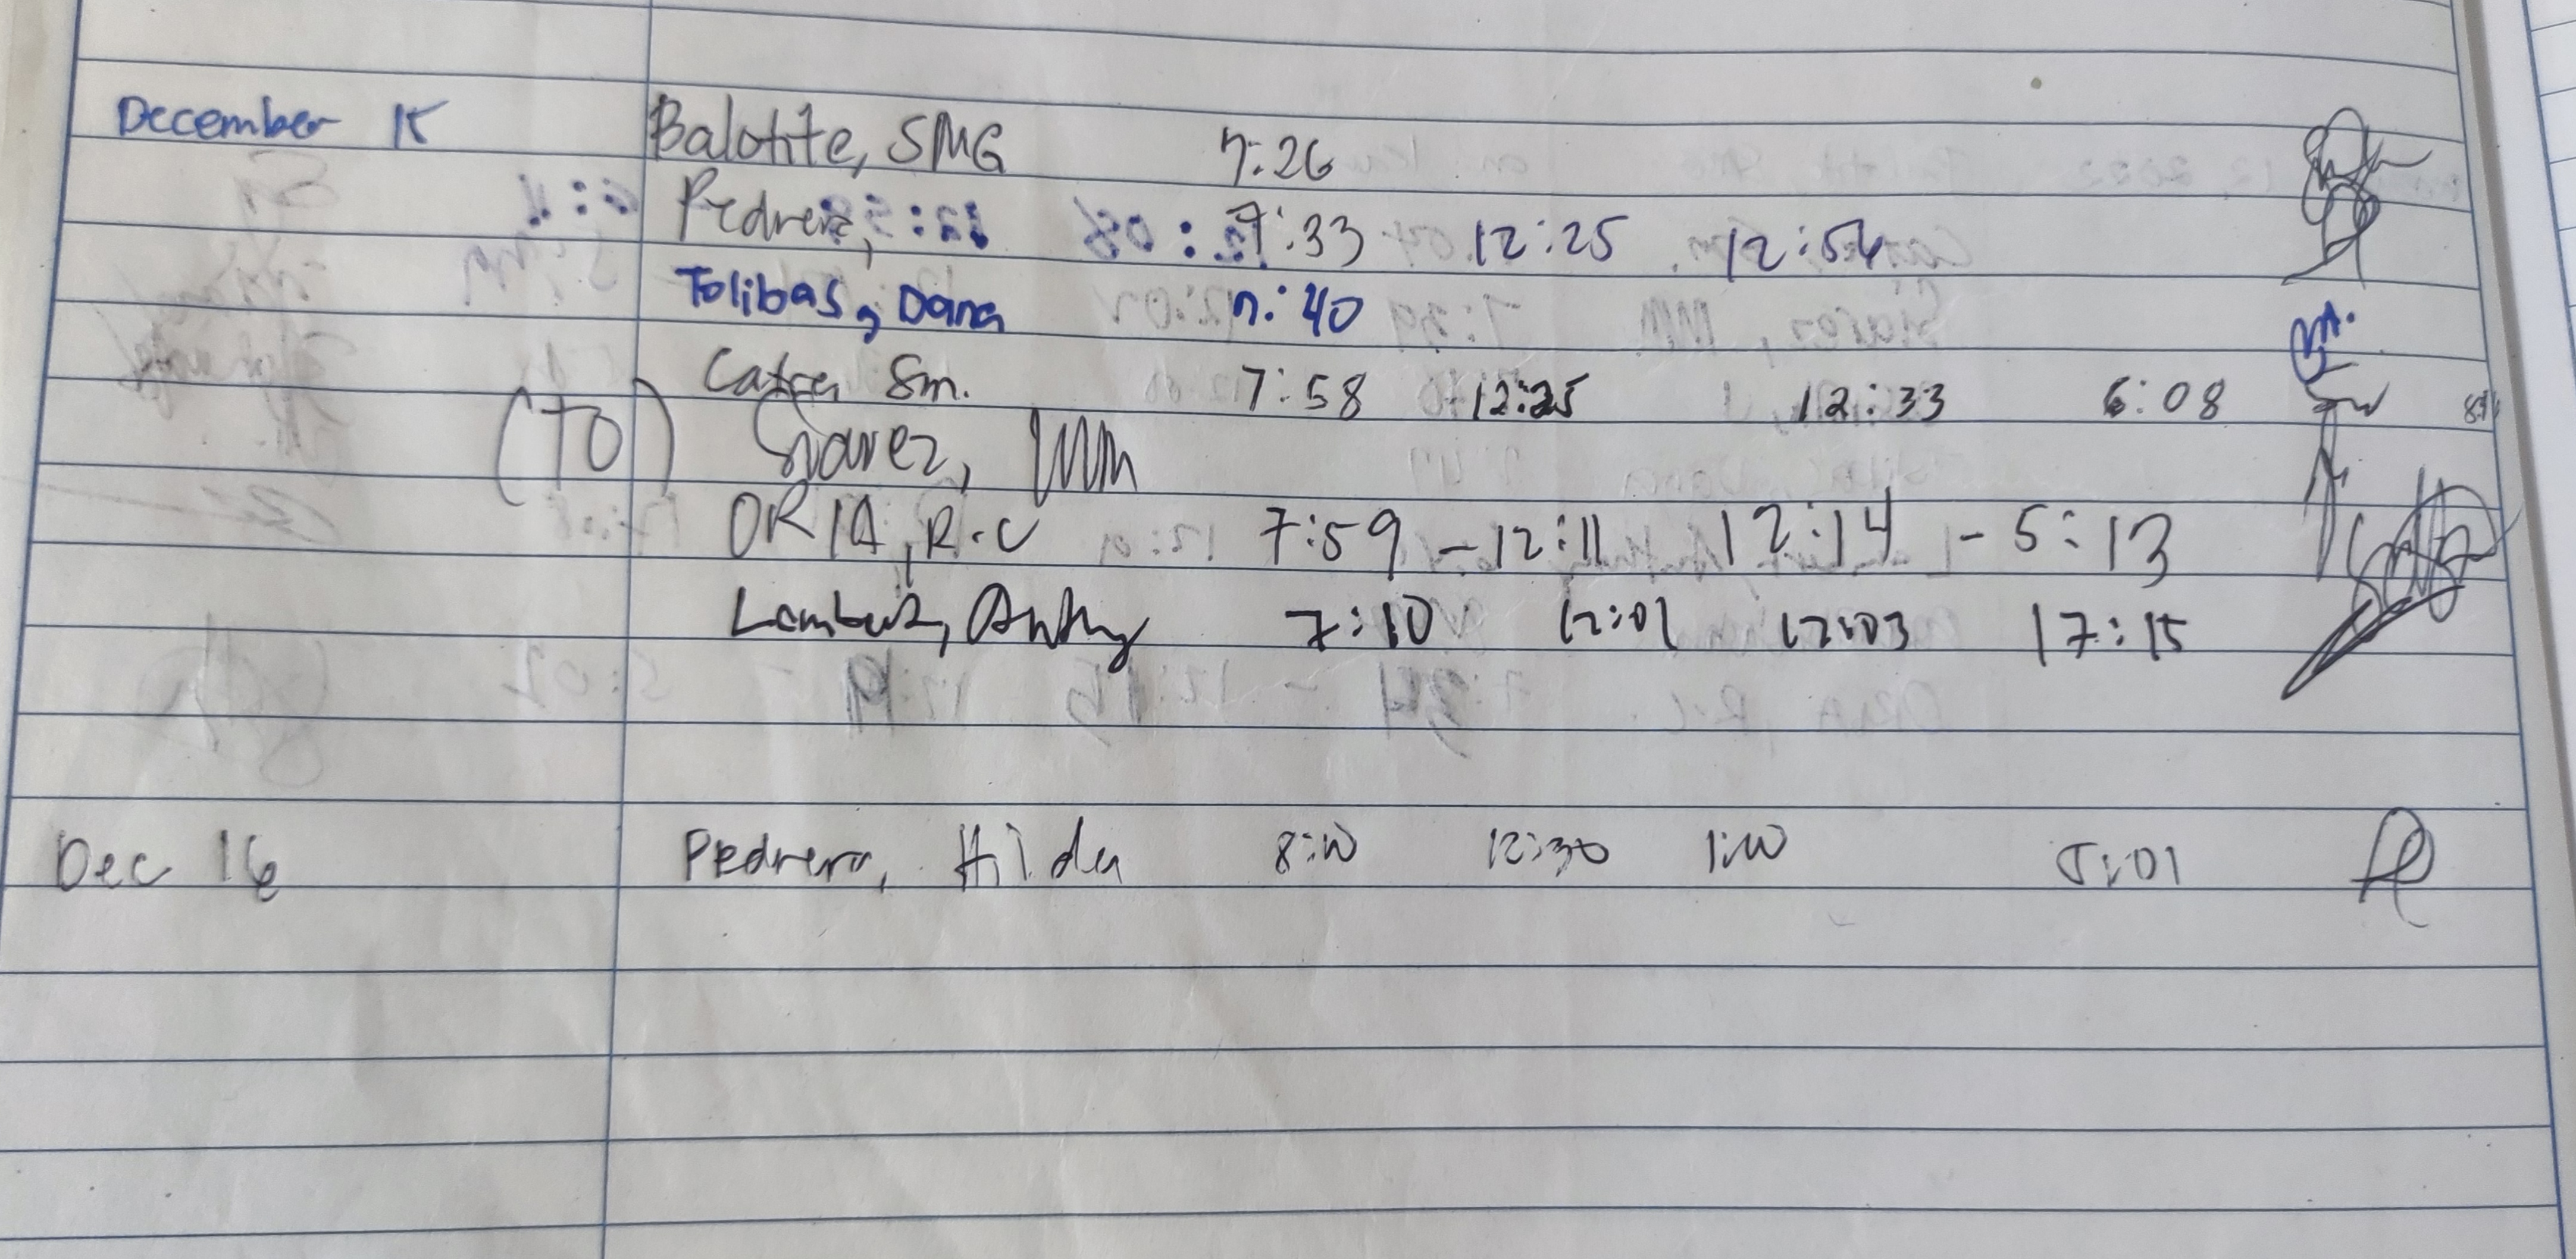 December 15 Balotite, SMG 7:26
Pedrera, 7:33 12:25 12:54
Tolibas, Dana 7:40
Sm. 7:58 12:25 12:33 6:08
(TO) Siarez, MM
ORIA, R.C 7:59 - 12:11 12:14 - 5:13
Lambert, Anthy 7:10 12:01 12:03 17:15
Dec 16 Pedrera, Hilda 8:00 12:30 1:00 5:01